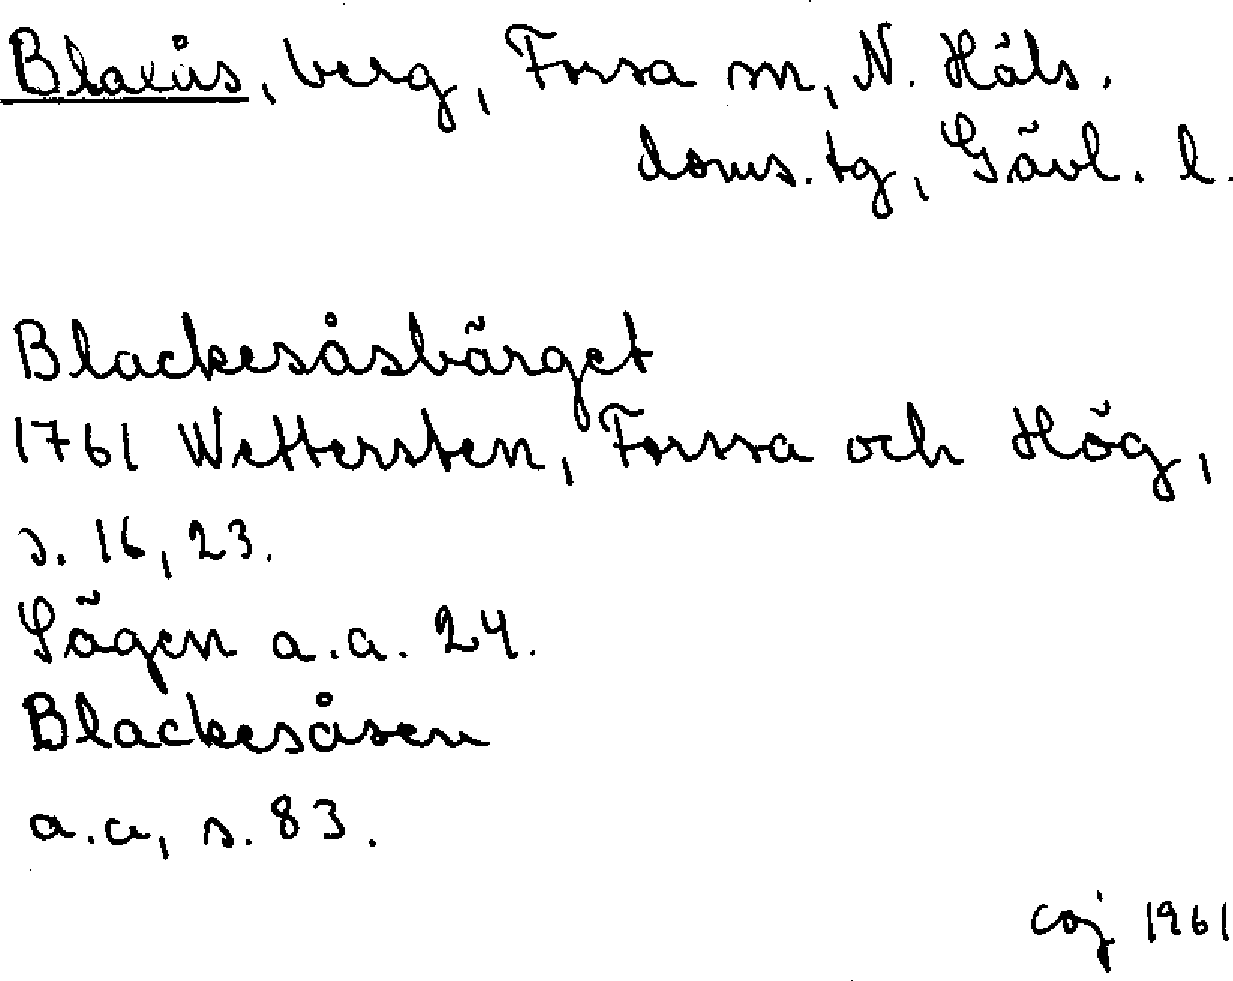 Blaxås, berg, Forsa sn, N. Häls.
doms. tg, Gävl. l.
Blackesåsbärget
1761 Wettersten, Forssa och Hög,
s. 16, 23.
Sägen a.a. 24.
Blackesåsen
a.a, s. 83.
coj 1961